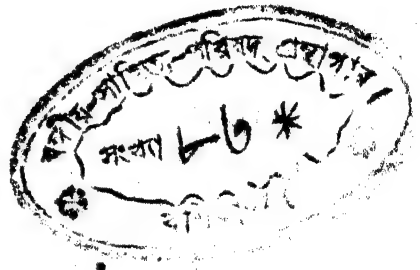 বঙ্গীয় সাহিত্য পরিষদ গ্রন্থাগার
সংখ্যা ৮৬